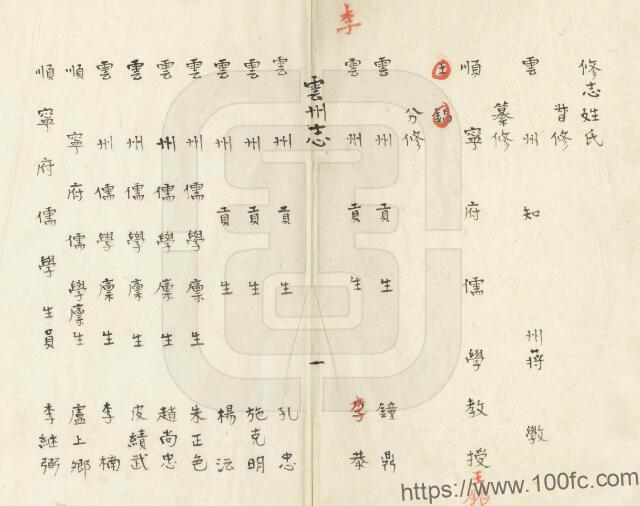 修志姓氏
昔修
雲州知州蔣敩
纂修
順寧府儒學教授
王錫
分修
雲州貢生鐘鼎
雲州貢生李恭
李
雲州志
一
雲州貢生孔忠
雲州貢生施克明
雲州貢生楊沄
雲州儒學廩生朱正色
雲州儒學廩生趙尚忠
雲州儒學廩生皮績武
雲州儒學廩生李楠
順寧府儒學廩生盧上鄉
順寧府儒學生員李繼弼
https://www.100fc.com